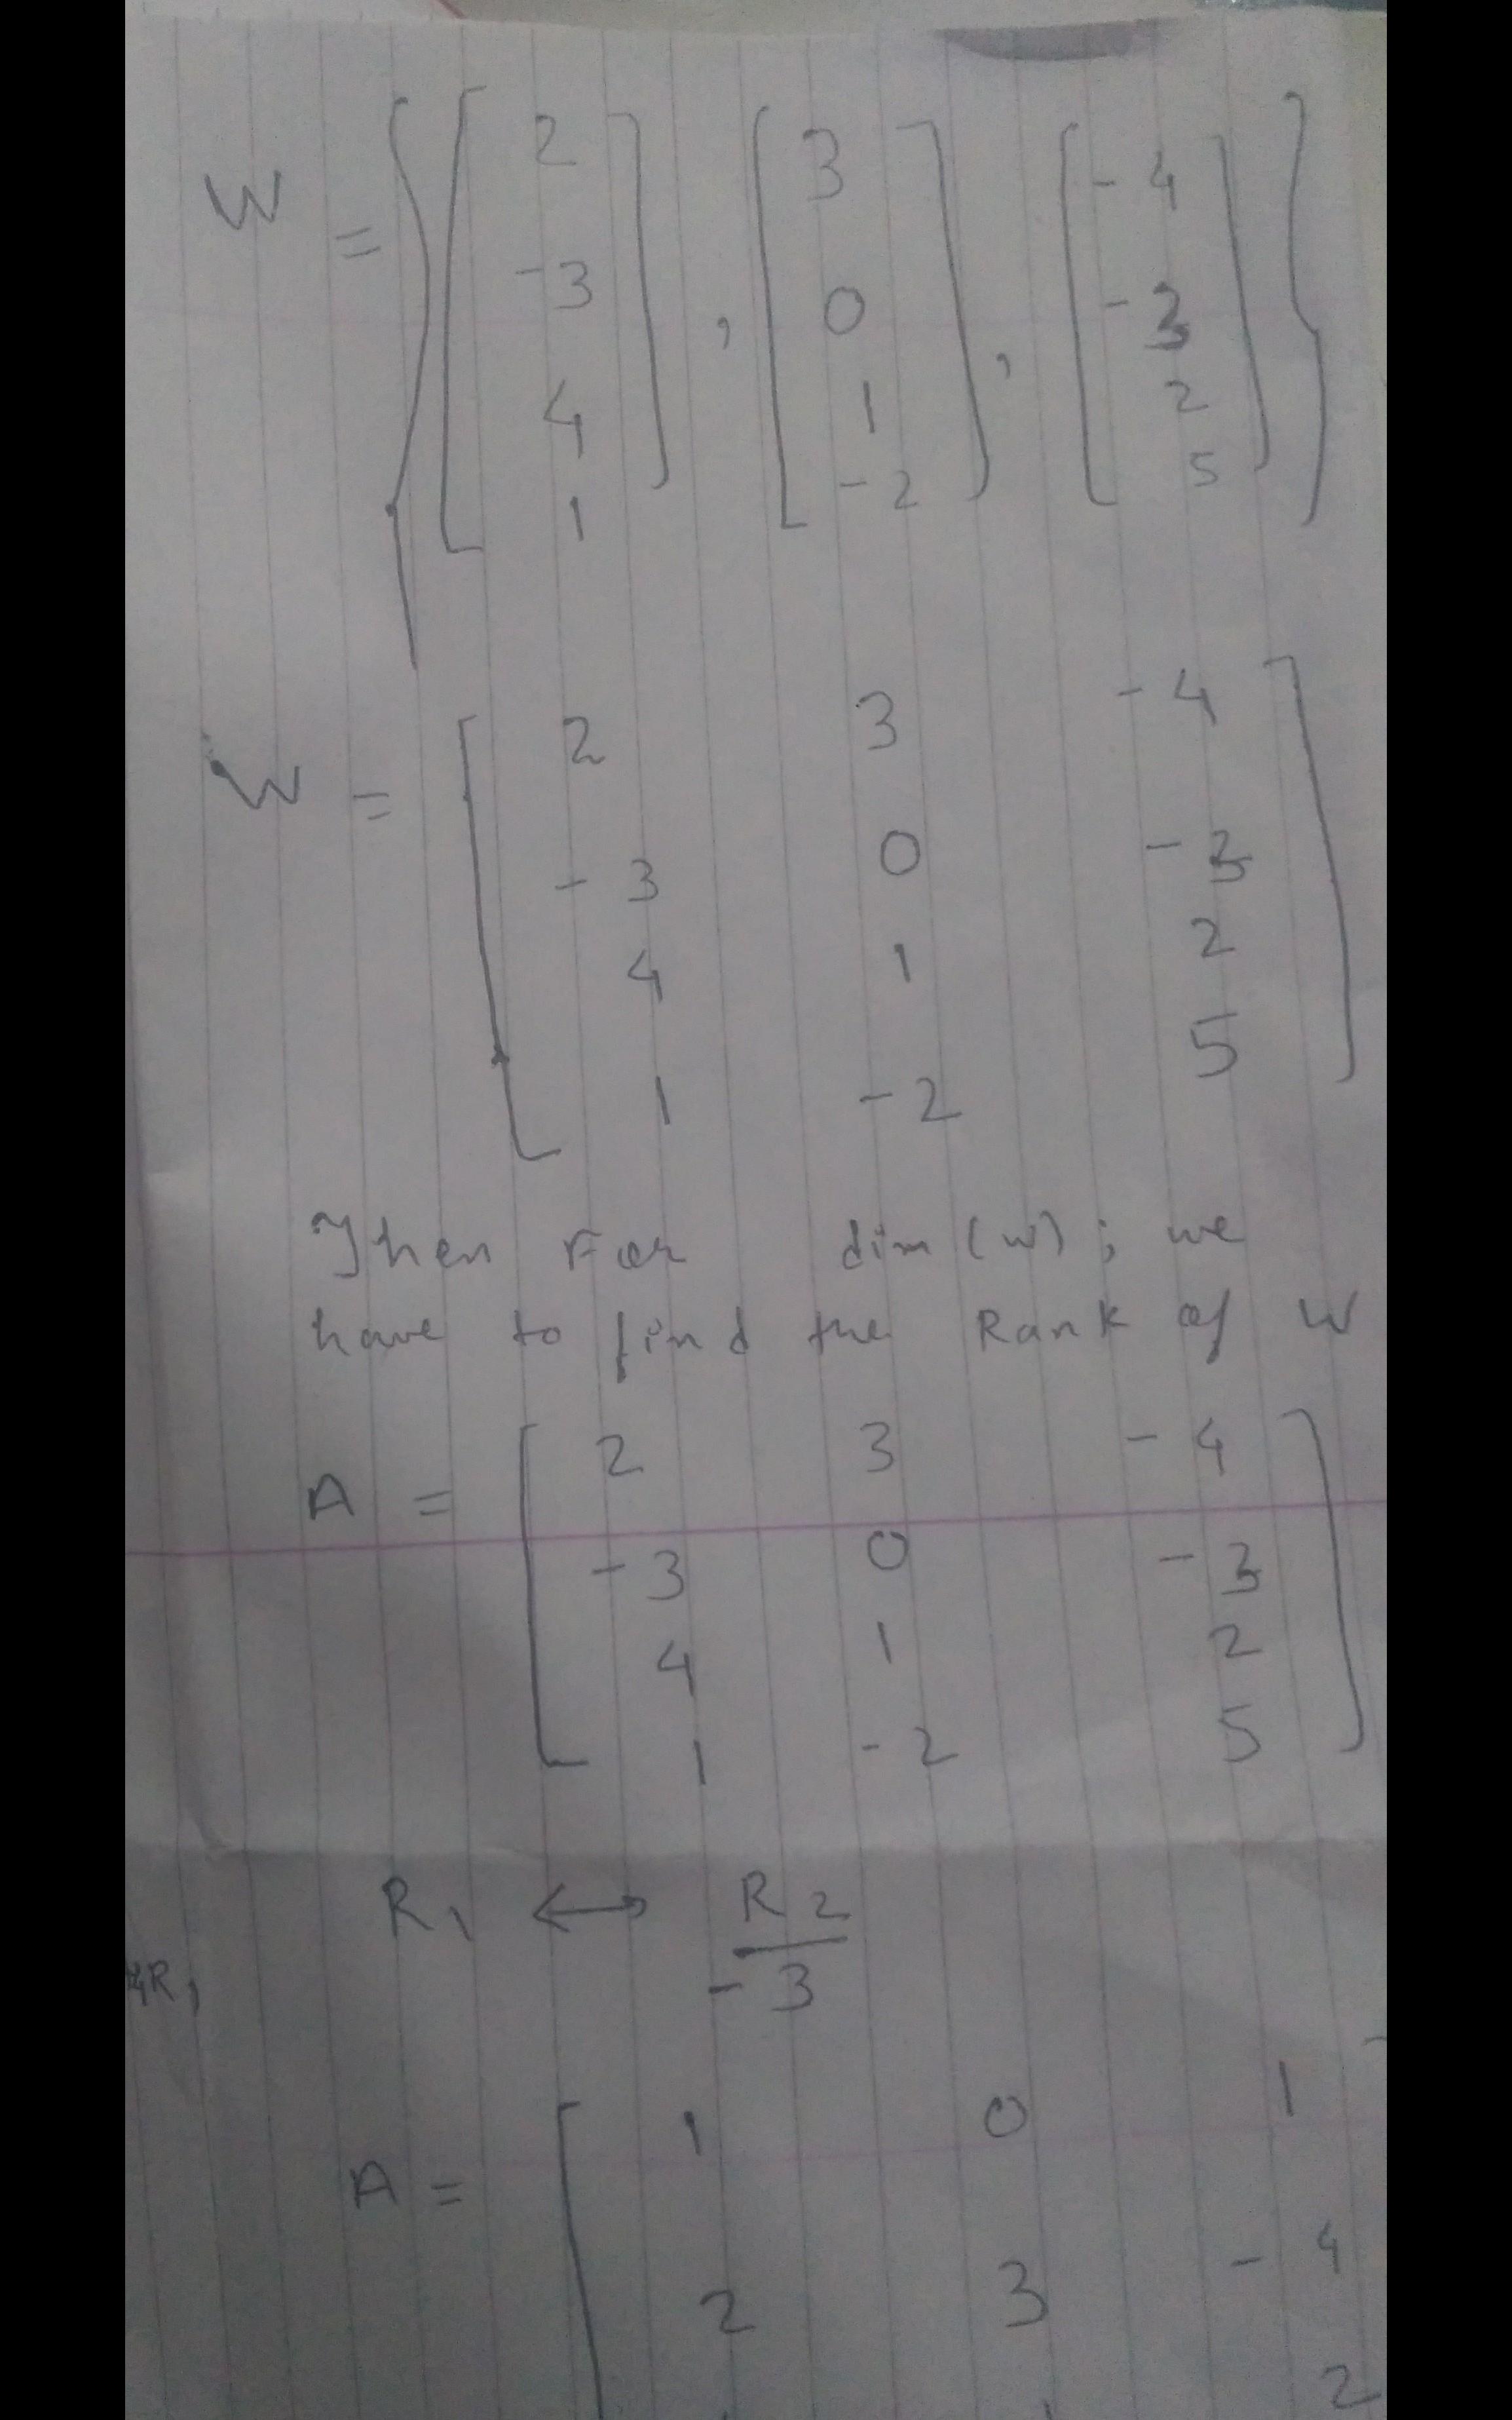 W = { [ 2 -3 4 1 ] , [ 3 0 1 -2 ] , [ -4 -3 2 5 ] }
W = [ 2 3 -4
-3 0 -3
4 1 2
1 -2 5 ]
Then For dim (W) ; we
have to find the Rank of W
A = [ 2 3 -4
-3 0 -3
4 1 2
1 -2 5 ]
R1 ↔ R2 / -3
R1
A = [ 1 0 1
2 3 -4
2